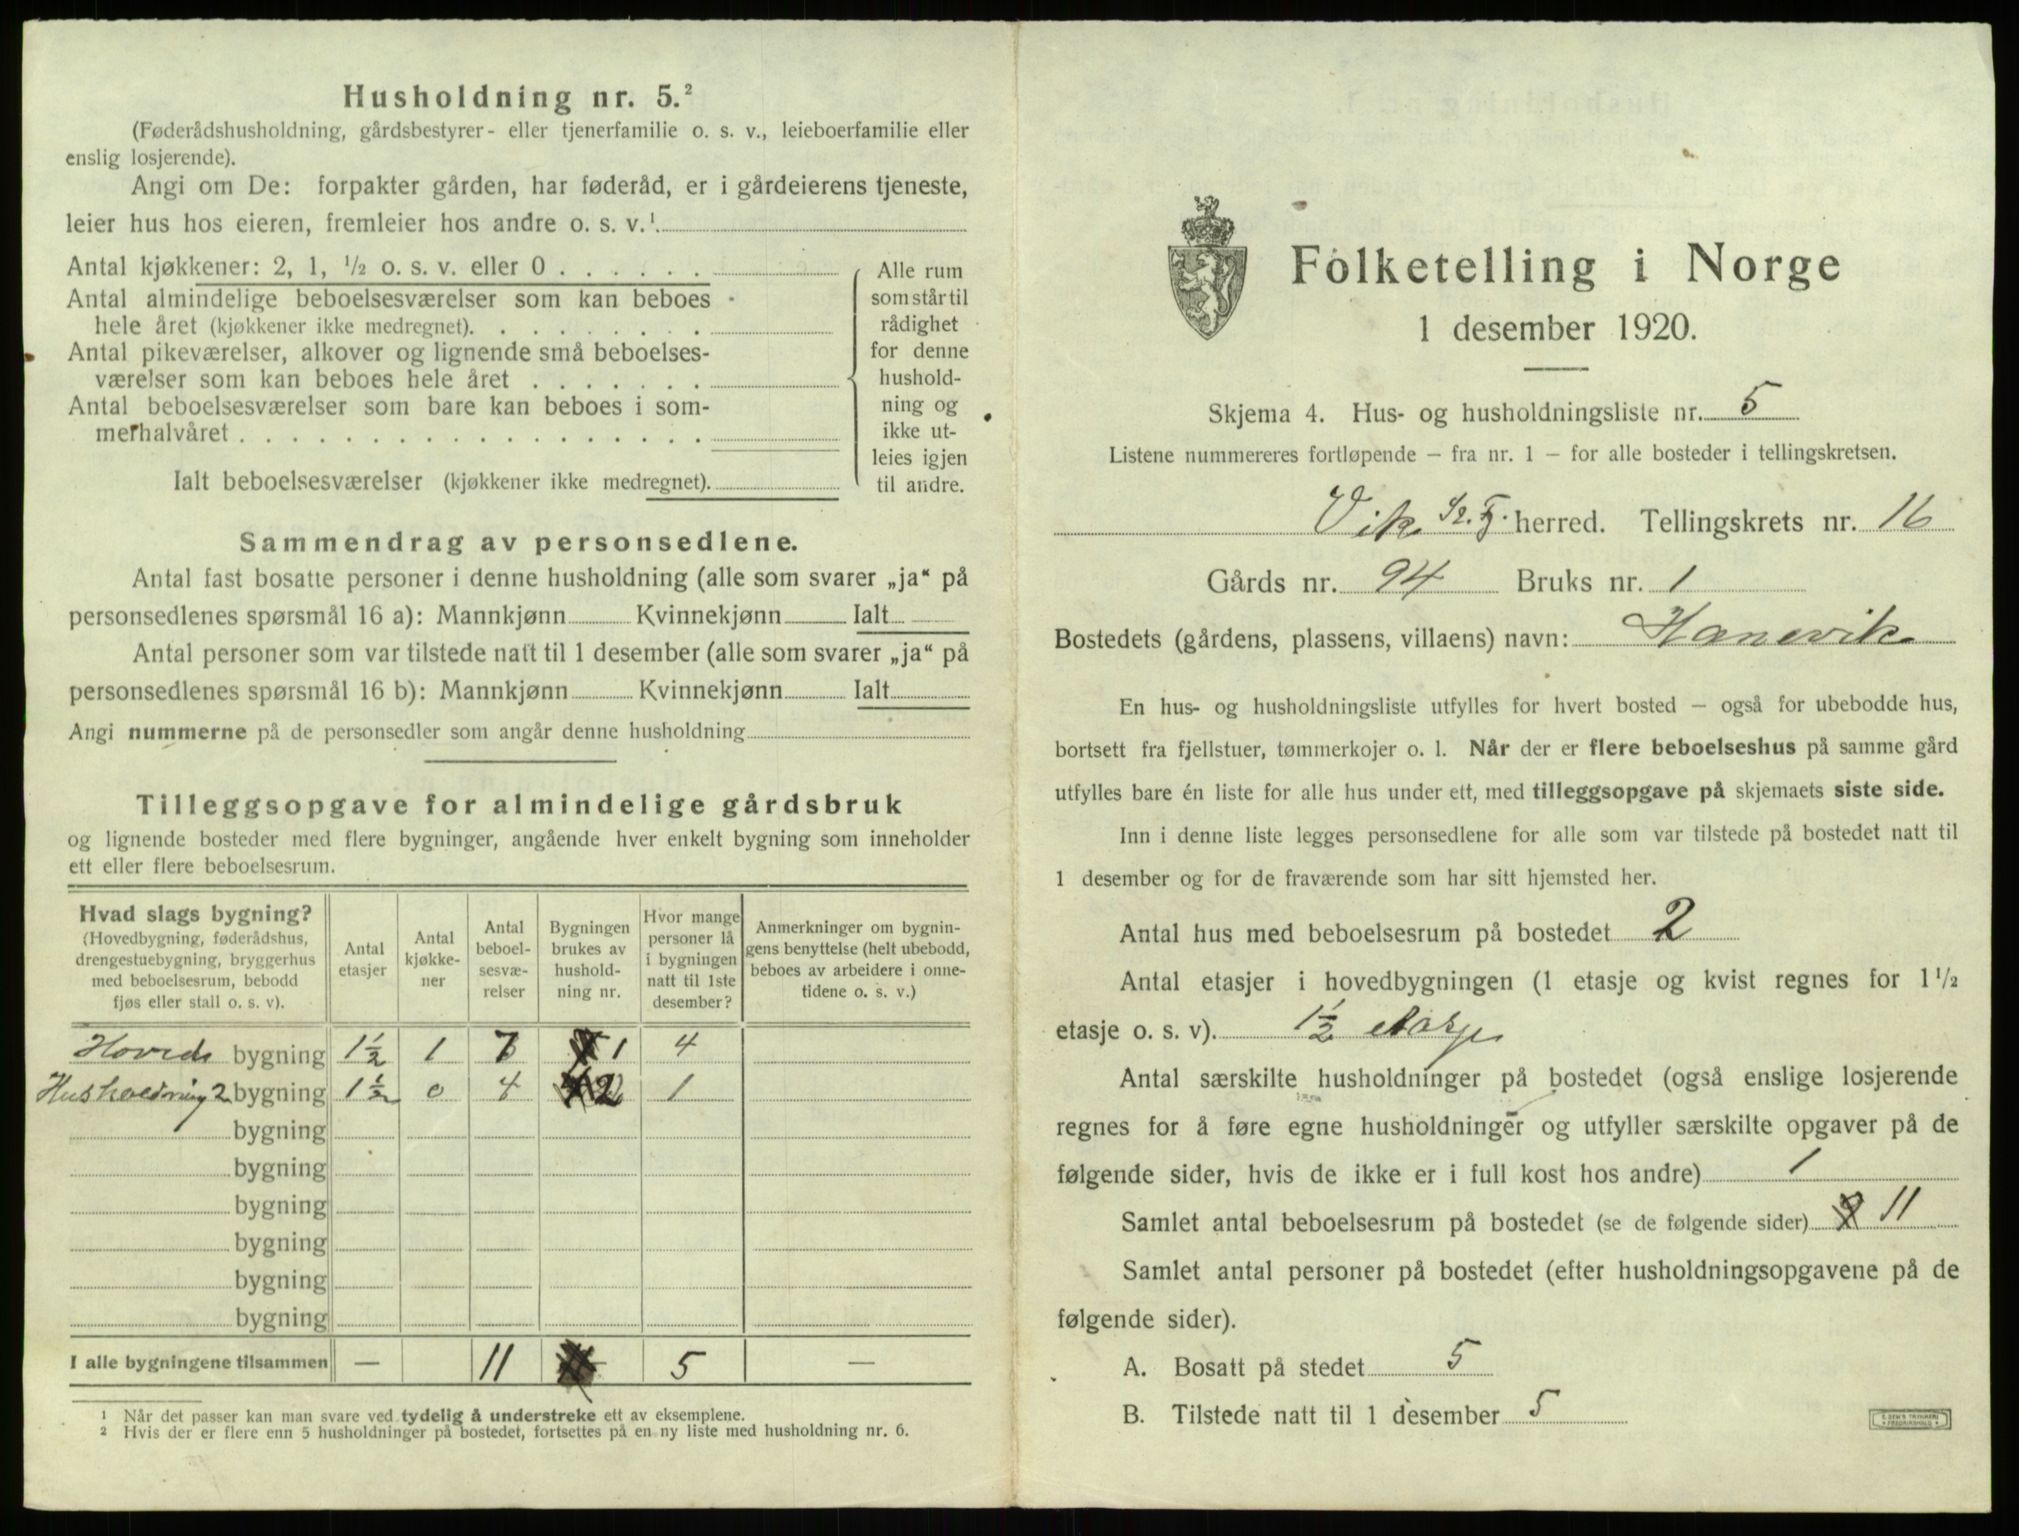 Husholdning nr. 5.²
(Føderådshusholdning, gårdsbestyrer- eller tjenerfamilie o. s. v., leieboerfamilie eller
enslig losjerende).
Angi om De: forpakter gården, har føderåd, er i gårdeierens tjeneste,
leier hus hos eieren, fremleier hos andre o. s. v.¹
Antal kjøkkener: 2, 1, ½ o. s. v. eller 0 . . . . . .
Antal almindelige beboelsesværelser som kan beboes
hele året (kjøkkener ikke medregnet). . . . . . . . .
Antal pikeværelser, alkover og lignende små beboelses-
værelser som kan beboes hele året . . . . . . .
Antal beboelsesværelser som bare kan beboes i som-
merhalvåret . . . . . . . . . . . . . . . . . .
Ialt beboelsesværelser (kjøkkener ikke medregnet).
Alle rum
som står til
rådighet
for denne
hushold-
ning og
ikke ut-
leies igjen
til andre.
Sammendrag av personsedlene.
Antal fast bosatte personer i denne husholdning (alle som svarer „ja“ på
personsedlenes spørsmål 16 a): Mannkjønn Kvinnekjønn Ialt
Antal personer som var tilstede natt til 1 desember (alle som svarer „ja“ på
personsedlenes spørsmål 16 b): Mannkjønn Kvinnekjønn Ialt
Angi nummerne på de personsedler som angår denne husholdning
Tilleggsopgave for almindelige gårdsbruk
og lignende bosteder med flere bygninger, angående hver enkelt bygning som inneholder
ett eller flere beboelsesrum.
Hvad slags bygning?
(Hovedbygning, føderådshus,
drengestuebygning, bryggerhus
med beboelsesrum, bebodd
fjøs eller stall o. s. v).
Antal
etasjer
Antal
kjøkke-
ner
Antal
beboel-
sesvæ-
relser
Bygningen
brukes av
hushold-
ning nr.
Hvor mange
personer lå
i bygningen
natt til 1ste
desember?
Anmerkninger om bygnin-
gens benyttelse (helt ubebodd,
beboes av arbeidere i onne-
tidene o. s. v.)
Hoveds bygning 1½ 1 7 1 4
Husholdning 2 bygning 1½ 0 4 2 1
bygning
bygning
bygning
bygning
bygning
bygning
I alle bygningene tilsammen — 11 5 —
¹ Når det passer kan man svare ved tydelig å understreke ett av eksemplene.
² Hvis der er flere enn 5 husholdninger på bostedet, fortsettes på en ny liste med husholdning nr. 6.
Folketelling i Norge
1 desember 1920.
Skjema 4. Hus- og husholdningsliste nr. 5
Listene nummereres fortløpende – fra nr. 1 – for alle bosteder i tellingskretsen.
Vik Sr. Fj. herred. Tellingskrets nr. 16
Gårds nr. 94 Bruks nr. 1
Bostedets (gårdens, plassens, villaens) navn: Hanevik
En hus- og husholdningsliste utfylles for hvert bosted – også for ubebodde hus,
bortsett fra fjellstuer, tømmerkojer o. l. Når der er flere beboelseshus på samme gård
utfylles bare én liste for alle hus under ett, med tilleggsopgave på skjemaets siste side.
Inn i denne liste legges personsedlene for alle som var tilstede på bostedet natt til
1 desember og for de fraværende som har sitt hjemsted her.
Antal hus med beboelsesrum på bostedet 2
Antal etasjer i hovedbygningen (1 etasje og kvist regnes for 1½
etasje o. s. v). 1½ etasje
Antal særskilte husholdninger på bostedet (også enslige losjerende
regnes for å føre egne husholdninger og utfyller særskilte opgaver på de
følgende sider, hvis de ikke er i full kost hos andre) 1
Samlet antal beboelsesrum på bostedet (se de følgende sider) 11
Samlet antal personer på bostedet (efter husholdningsopgavene på de
følgende sider).
A. Bosatt på stedet 5
B. Tilstede natt til 1 desember 5